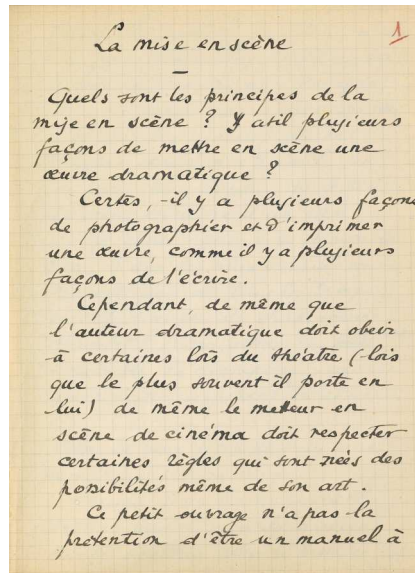 1
La mise en scène
Quels sont les principes de la
mise en scène ? Y a til plusieurs
façons de mettre en scène une
œuvre dramatique ?
Certes, il y a plusieurs façons
de photographier et d'imprimer
une œuvre, comme il y a plusieurs
façons de l'écrire.
Cependant, de même que
l'auteur dramatique doit obeir
à certaines lois du théatre (lois
que le plus souvent il porte en
lui) de même le metteur en
scène de cinéma doit respecter
certaines règles qui sont nées des
possibilités même de son art.
Ce petit ouvrage n'a pas la
prétention d'être un manuel à